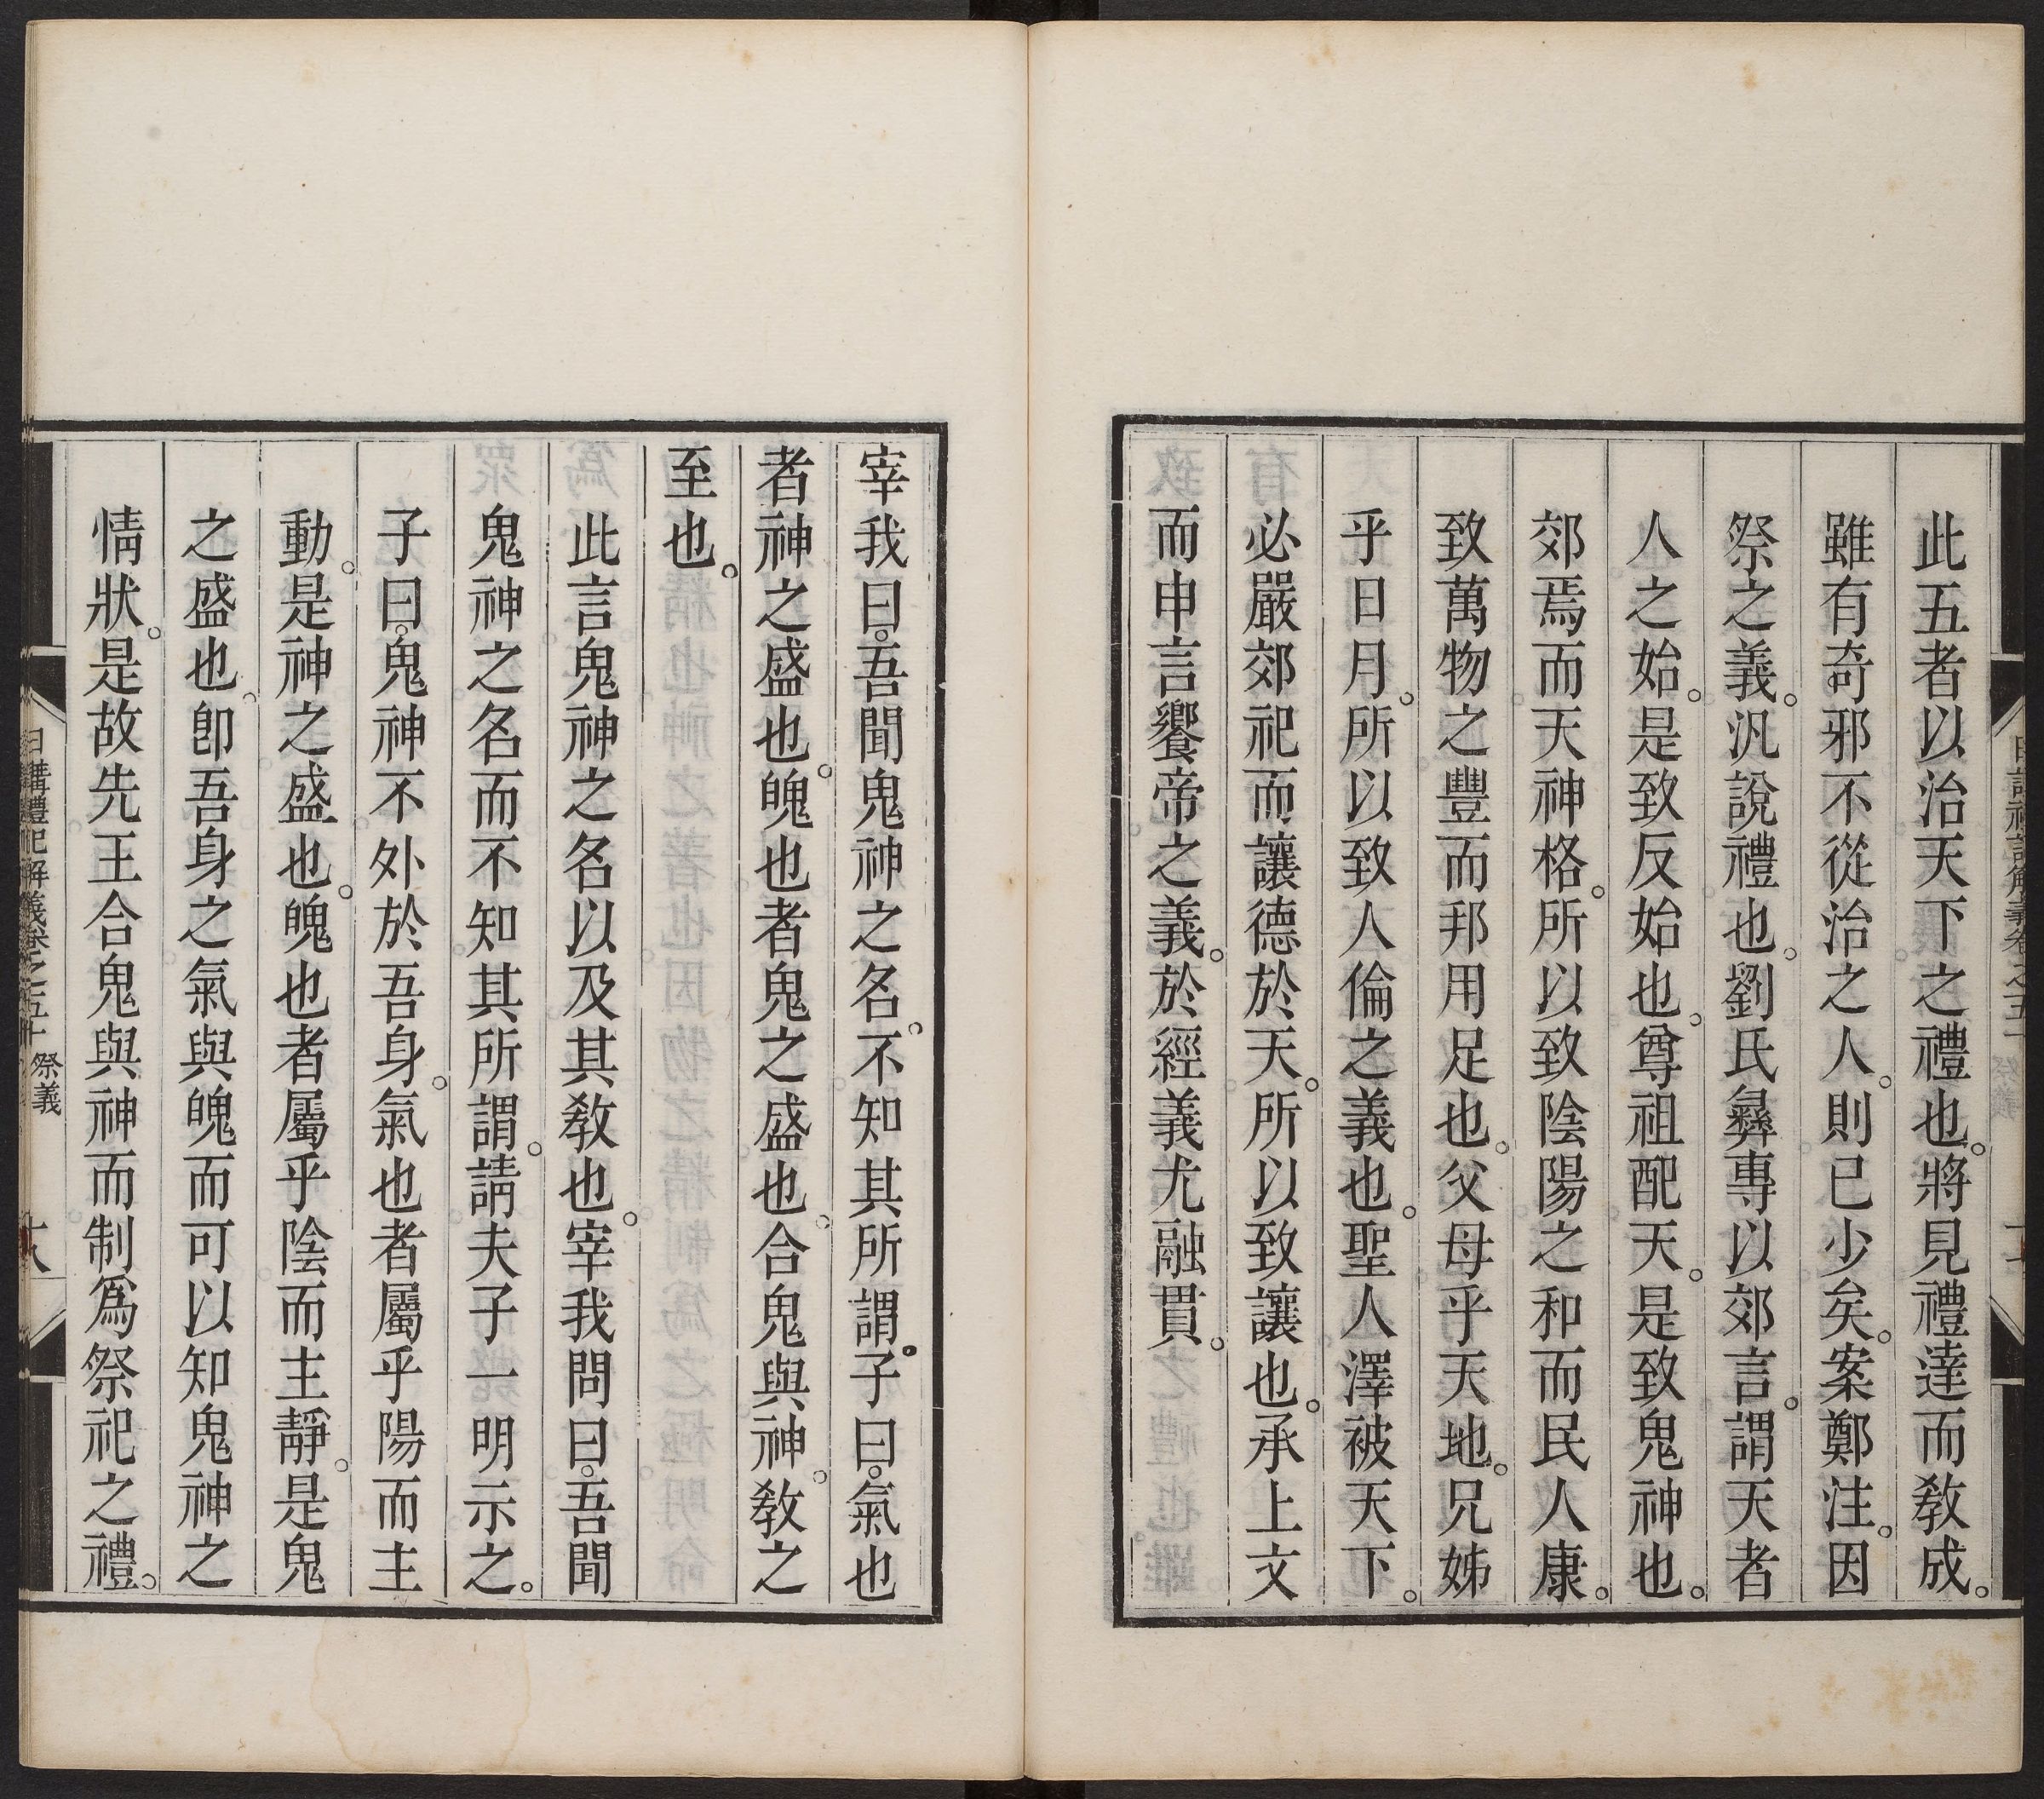 此五者以治天下之禮也。將見禮達而教成。
雖有奇邪不從治之人。則已少矣。案鄭注。因
祭之義。汎說禮也。劉氏彝專以郊言。謂天者
人之始。是致反始也。尊祖配天。是致鬼神也。
郊焉而天神格。所以致陰陽之和而民人康。
致萬物之豐而邦用足也。父母乎天地。兄姊
乎日月。所以致人倫之義也。聖人澤被天下。
必嚴郊祀而讓德於天。所以致讓也。承上文
而申言饗帝之義。於經義尤融貫。
宰我曰。吾聞鬼神之名。不知其所謂。子曰。氣也
者神之盛也。魄也者鬼之盛也。合鬼與神。教之
至也。
此言鬼神之名以及其教也。宰我問曰。吾聞
鬼神之名而不知其所謂。請夫子一明示之。
子曰。鬼神不外於吾身。氣也者屬乎陽而主
動。是神之盛也。魄也者屬乎陰而主靜。是鬼
之盛也。卽吾身之氣與魄而可以知鬼神之
情狀。是故先王合鬼與神而制爲祭祀之禮。
日講禮記解義卷之五十 祭義
十八